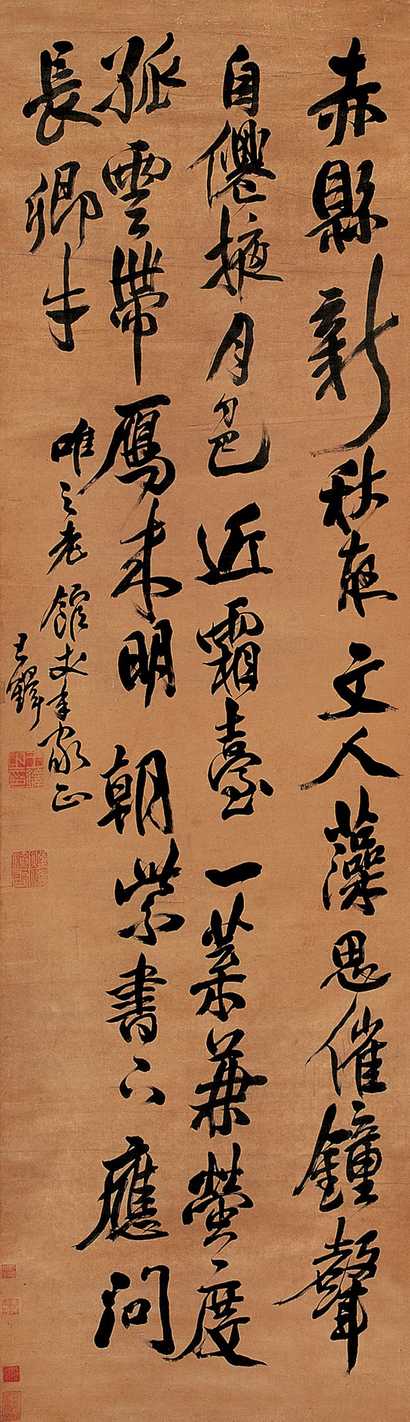 赤縣新秋夜文人藻思催鐘聲
自僊掖月色近霜臺一葉兼螢度
孤雲帶鴈來明朝紫書下應問
長卿才
唯之老館丈年家正
王鐸